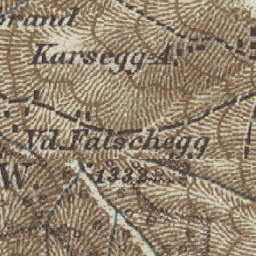 brand
Karsegg-A.
Vd. Falschegg
W
1332